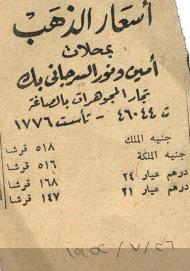 أسعار الذهب
بمحلات
أمين ونور السرجانى بك
تجار المجوهرات بالصاغة
ت ٤٦٠٤٤ – تأسست ١٧٧٦
جنيه الملك ٥١٨ قرشا
جنيه الملكة ٥١٦ قرشا
درهم عيار ٢٤ ١٦٨ قرشا
درهم عيار ٢١ ١٤٧ قرشا
٢٦/٧/١٩٥٢